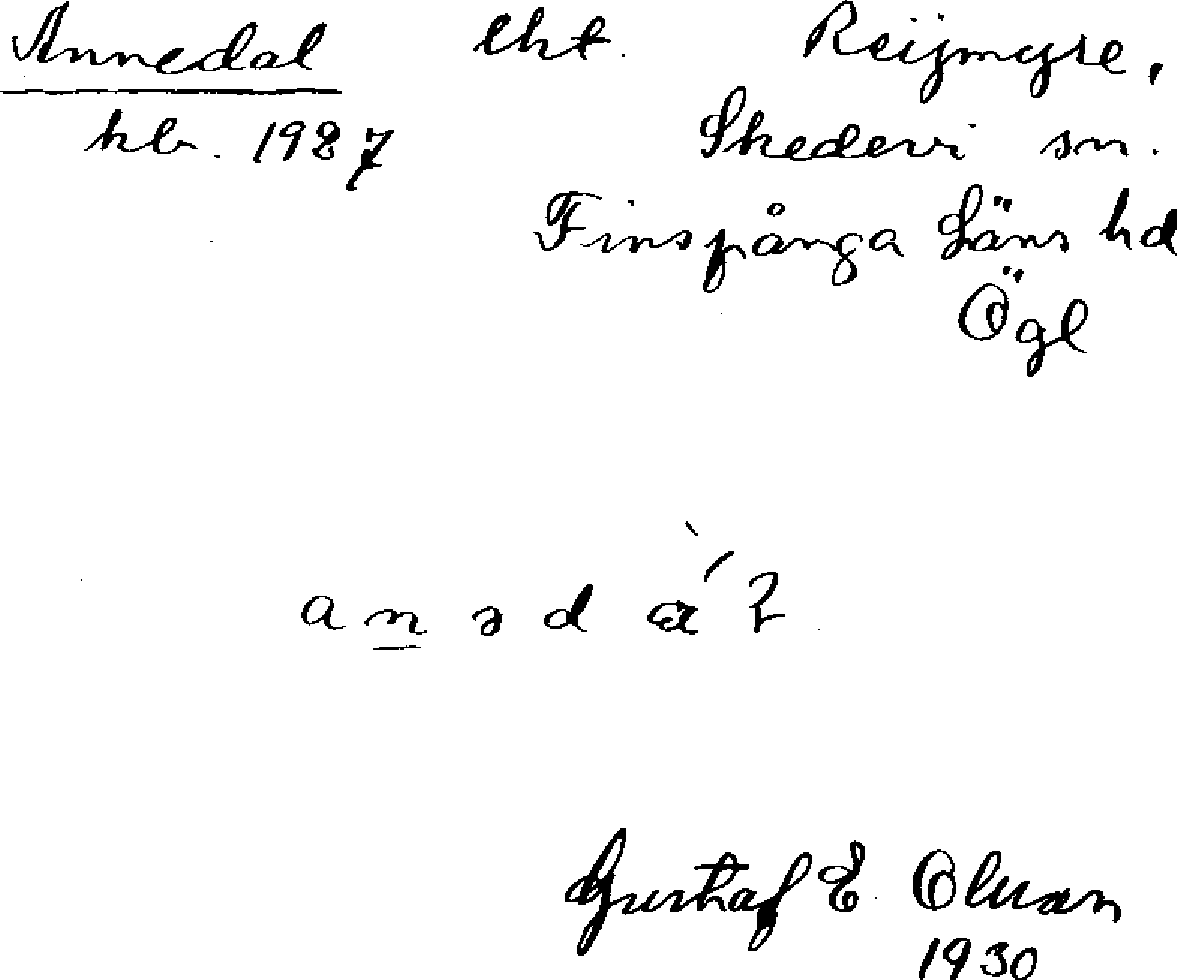 Annedal lht. Reijmyre,
hb. 1927 Skedevi sn.
Finspånga Läns hd
Ögl
Gustaf E. Olsson
1930